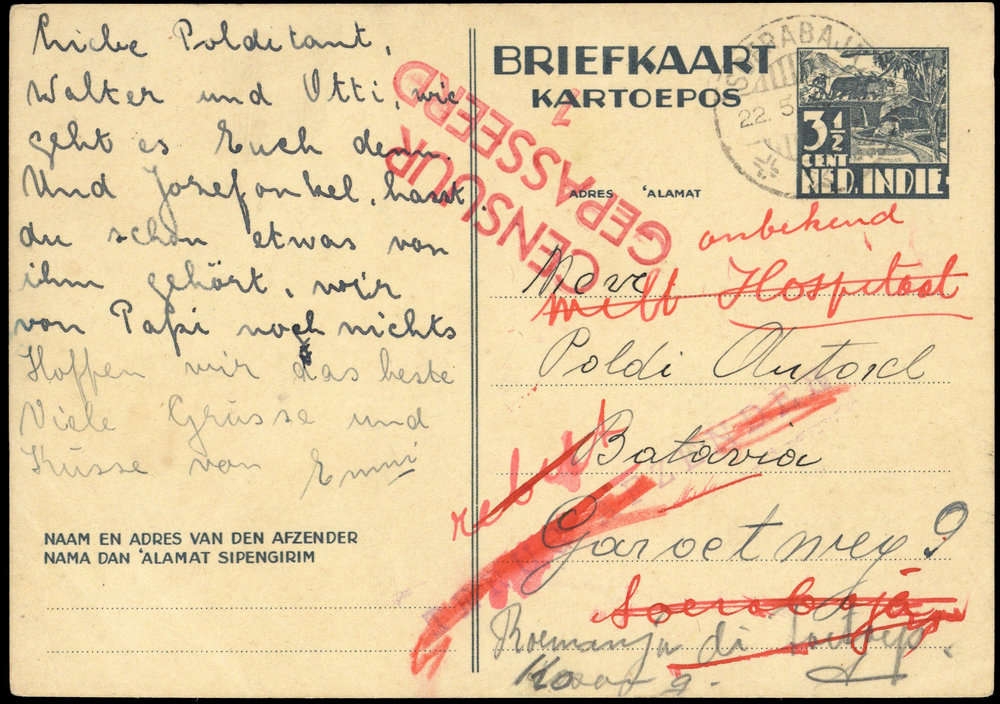 Liebe Polditant,
Walter und Otti, wie
geht es Euch denn.
Und Josefonkel, hasst
du schon etwas von
ihm gehört, wir
von Papi noch nichts
Hoffen wir das beste
Viele Grüsse und
Küsse von Emmi
NAAM EN ADRES VAN DEN AFZENDER
NAMA DAN ‘ALAMAT SIPENGIRIM
BRIEFKAART
KARTOEPOS
SOERABAJA
22.5
3½
CENT
NED. INDIE
CENSUUR
GEPASSEERD
1
ADRES ‘ALAMAT
onbekend
Mevr
Hospitaal
Poldi
Batavia
Garoetweg 9
Soerabaja
di